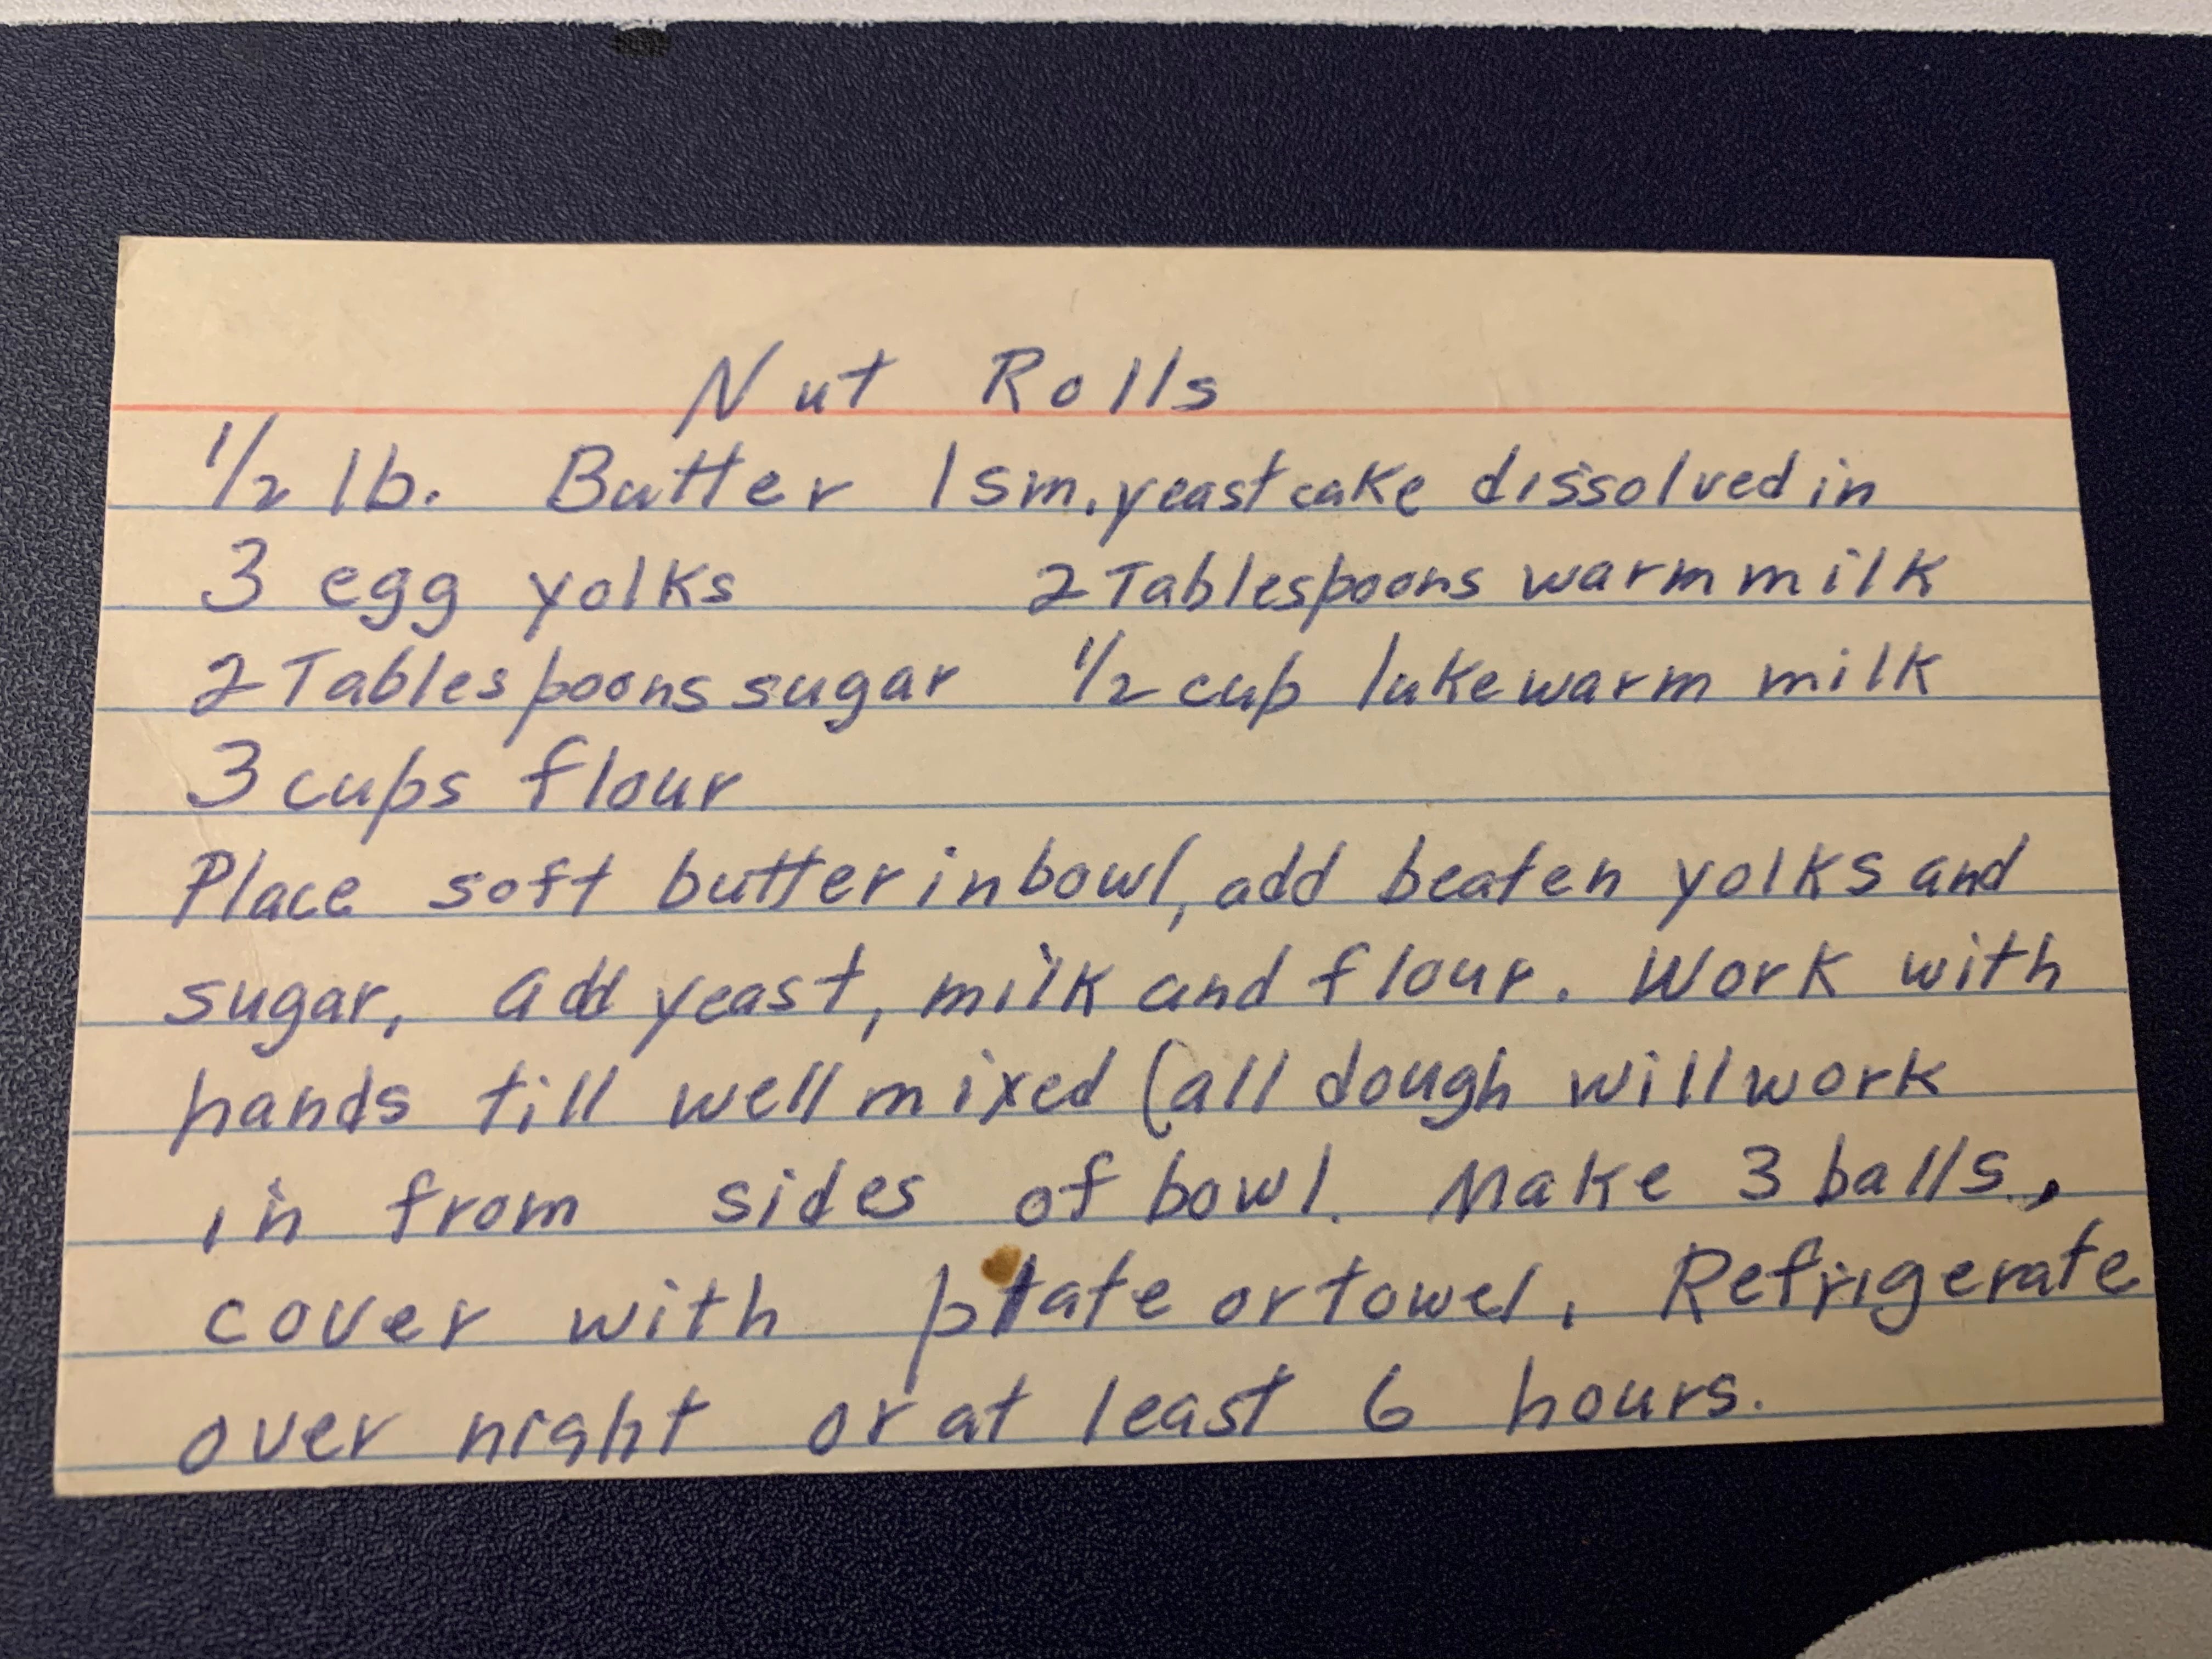 Nut Rolls
1/2 lb. Butter 1 sm. yeast cake dissolved in
3 egg yolks 2 Tablespoons warm milk
2 Tablespoons sugar 1/2 cup lukewarm milk
3 cups flour
Place soft butter in bowl, add beaten yolks and
sugar, add yeast, milk and flour. Work with
hands till well mixed (all dough will work
in from sides of bowl. Make 3 balls.,
cover with plate or towel. Refrigerate
over night or at least 6 hours.